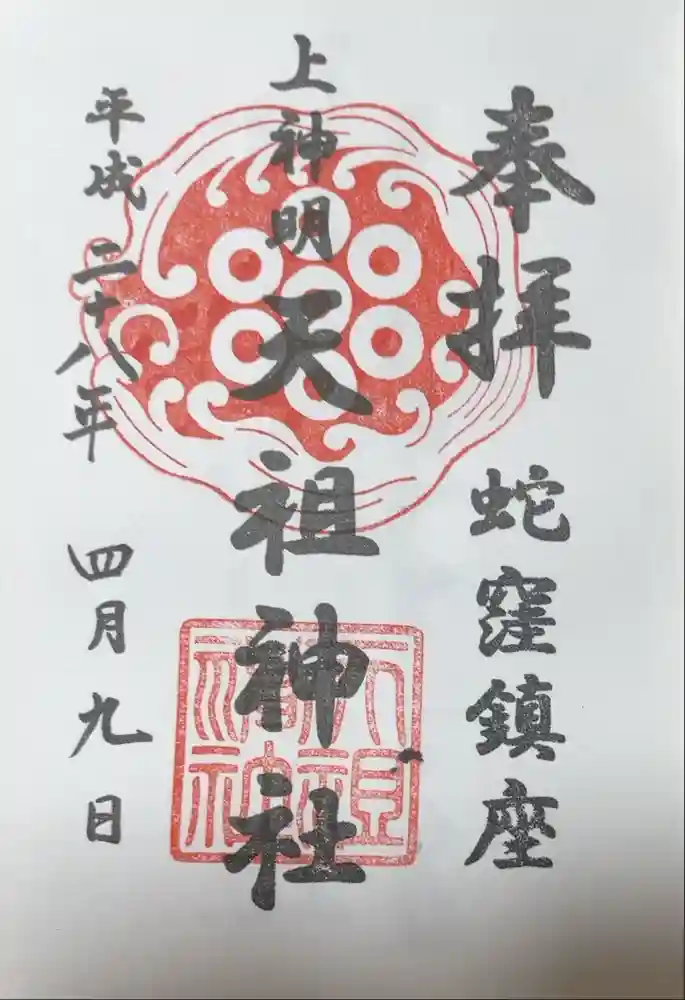 奉拝
蛇窪鎮座
上神明
天祖神社
平成二十八年四月九日